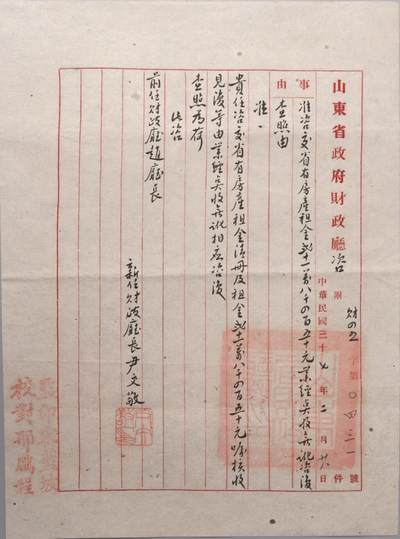 山東省政府財政廳咨
附件
財四五字第〇四三一號
中華民國三十七年二月廿日
事由
准咨交省有房產租金 十一萬八千四百五十元業經點收無訛咨復
查照由
准
貴任咨交省有房產租金清冊及租金 十一萬八千四百五十元囑核收
見復等由業經點收無訛相應咨復
查照為荷
此咨
前任財政廳趙廳長
新任財政廳長尹文敬
監印
校對邢鵬程